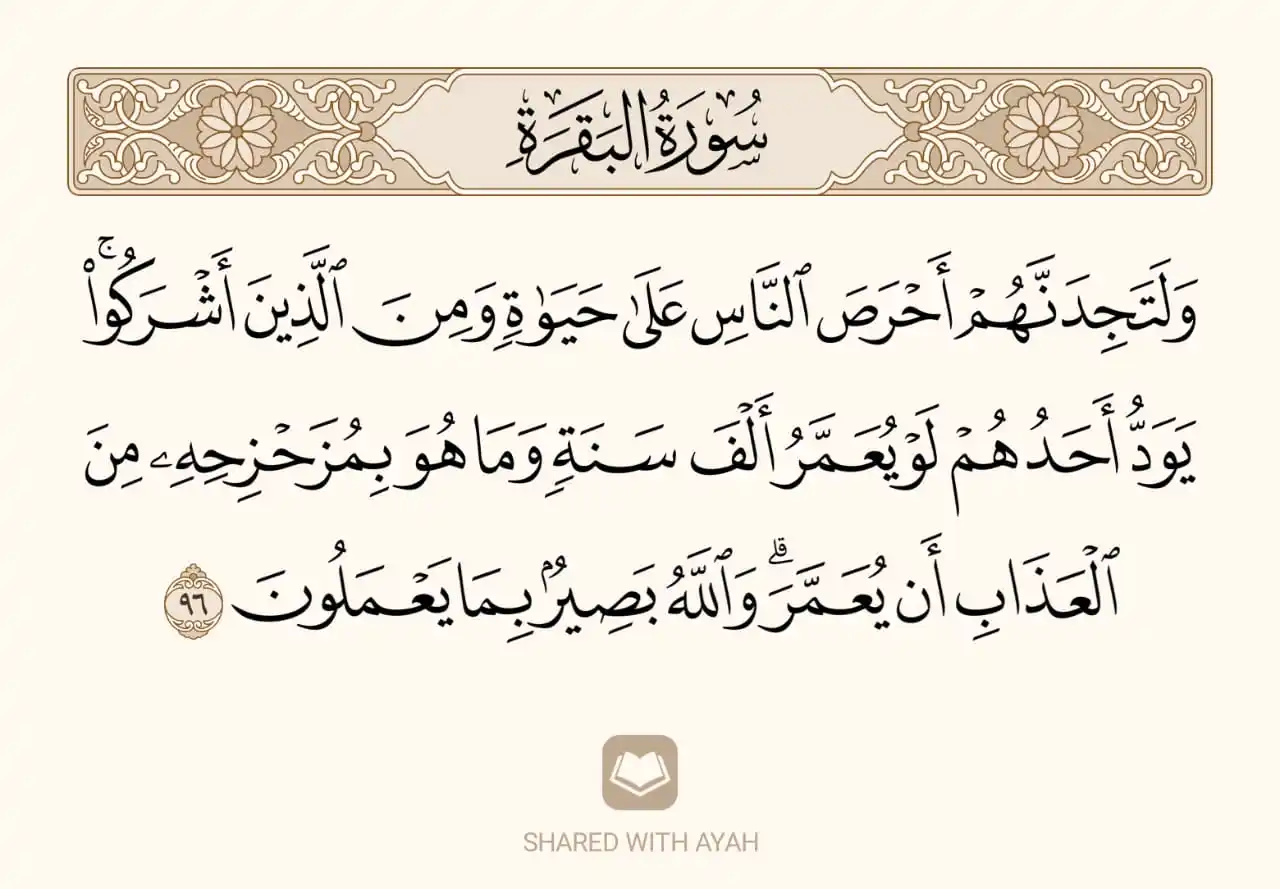 سُورَةُ البَقَرَةِ
وَلَتَجِدَنَّهُمۡ أَحۡرَصَ ٱلنَّاسِ عَلَىٰ حَيَوٰةٖ وَمِنَ ٱلَّذِينَ أَشۡرَكُواْۚ
يَوَدُّ أَحَدُهُمۡ لَوۡ يُعَمَّرُ أَلۡفَ سَنَةٖ وَمَا هُوَ بِمُزَحۡزِحِهِۦ مِنَ
ٱلۡعَذَابِ أَن يُعَمَّرَۗ وَٱللَّهُ بَصِيرُۢ بِمَا يَعۡمَلُونَ ٩٦
SHARED WITH AYAH